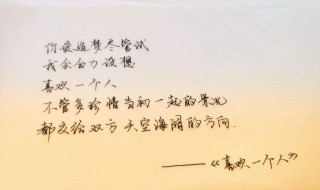 你爱追梦尽管试
我会合力设想
喜欢一个人
不管多珍惜当初一起的景况
都交给双方 天空海阔的方向
——《喜欢一个人》